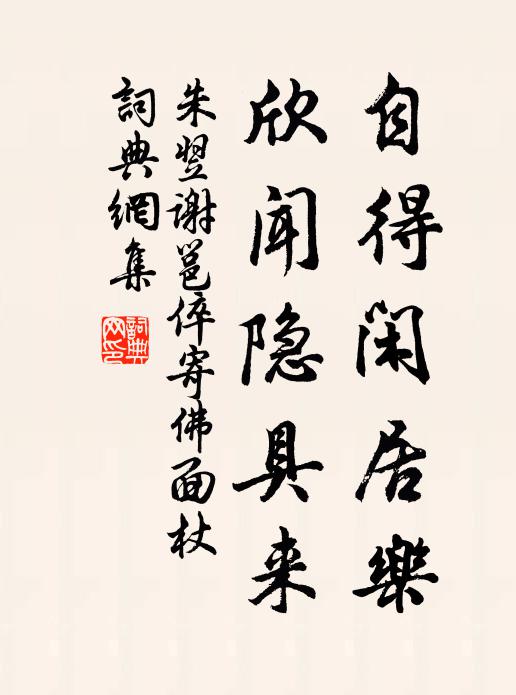 自得闲居樂
欣聞隐具来
朱翌謝邕倅寄佛面杖
詞典網集
詞典
网印